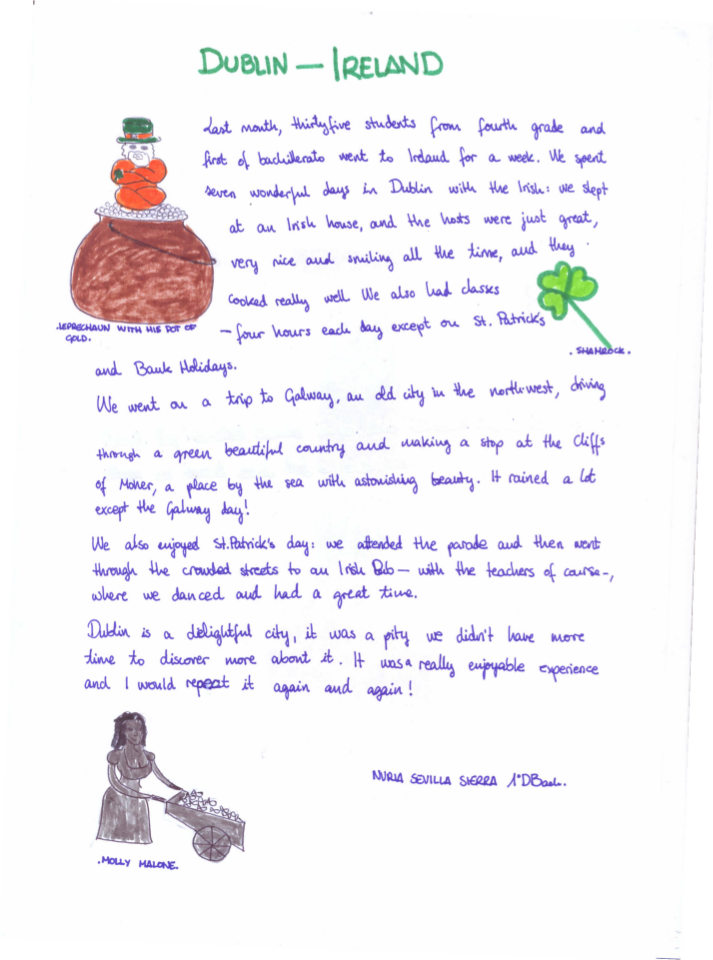 DUBLIN — IRELAND
Last month, thirtyfive students from fourth grade and
first of bachillerato went to Ireland for a week. We spent
seven wonderful days in Dublin with the Irish: we slept
at an Irish house, and the hosts were just great,
very nice and smiling all the time, and they
cooked really well. We also had classes
– four hours each day except on St. Patrick's
.LEPRECHAUN WITH HIS POT OF
GOLD.
. SHAMROCK.
and Bank Holidays.
We went on a trip to Galway, an old city in the north-west, driving
through a green beautiful country and making a stop at the Cliffs
of Moher, a place by the sea with astonishing beauty. It rained a lot
except the Galway day!
We also enjoyed St.Patrick's day: we attended the parade and then went
through the crowded streets to an Irish Pub – with the teachers of course-,
where we danced and had a great time.
Dublin is a delightful city, it was a pity we didn't have more
time to discover more about it. It was a really enjoyable experience
and I would repeat it again and again!
NURIA SEVILLA SIERRA 1ºD Bach.
.MOLLY MALONE.